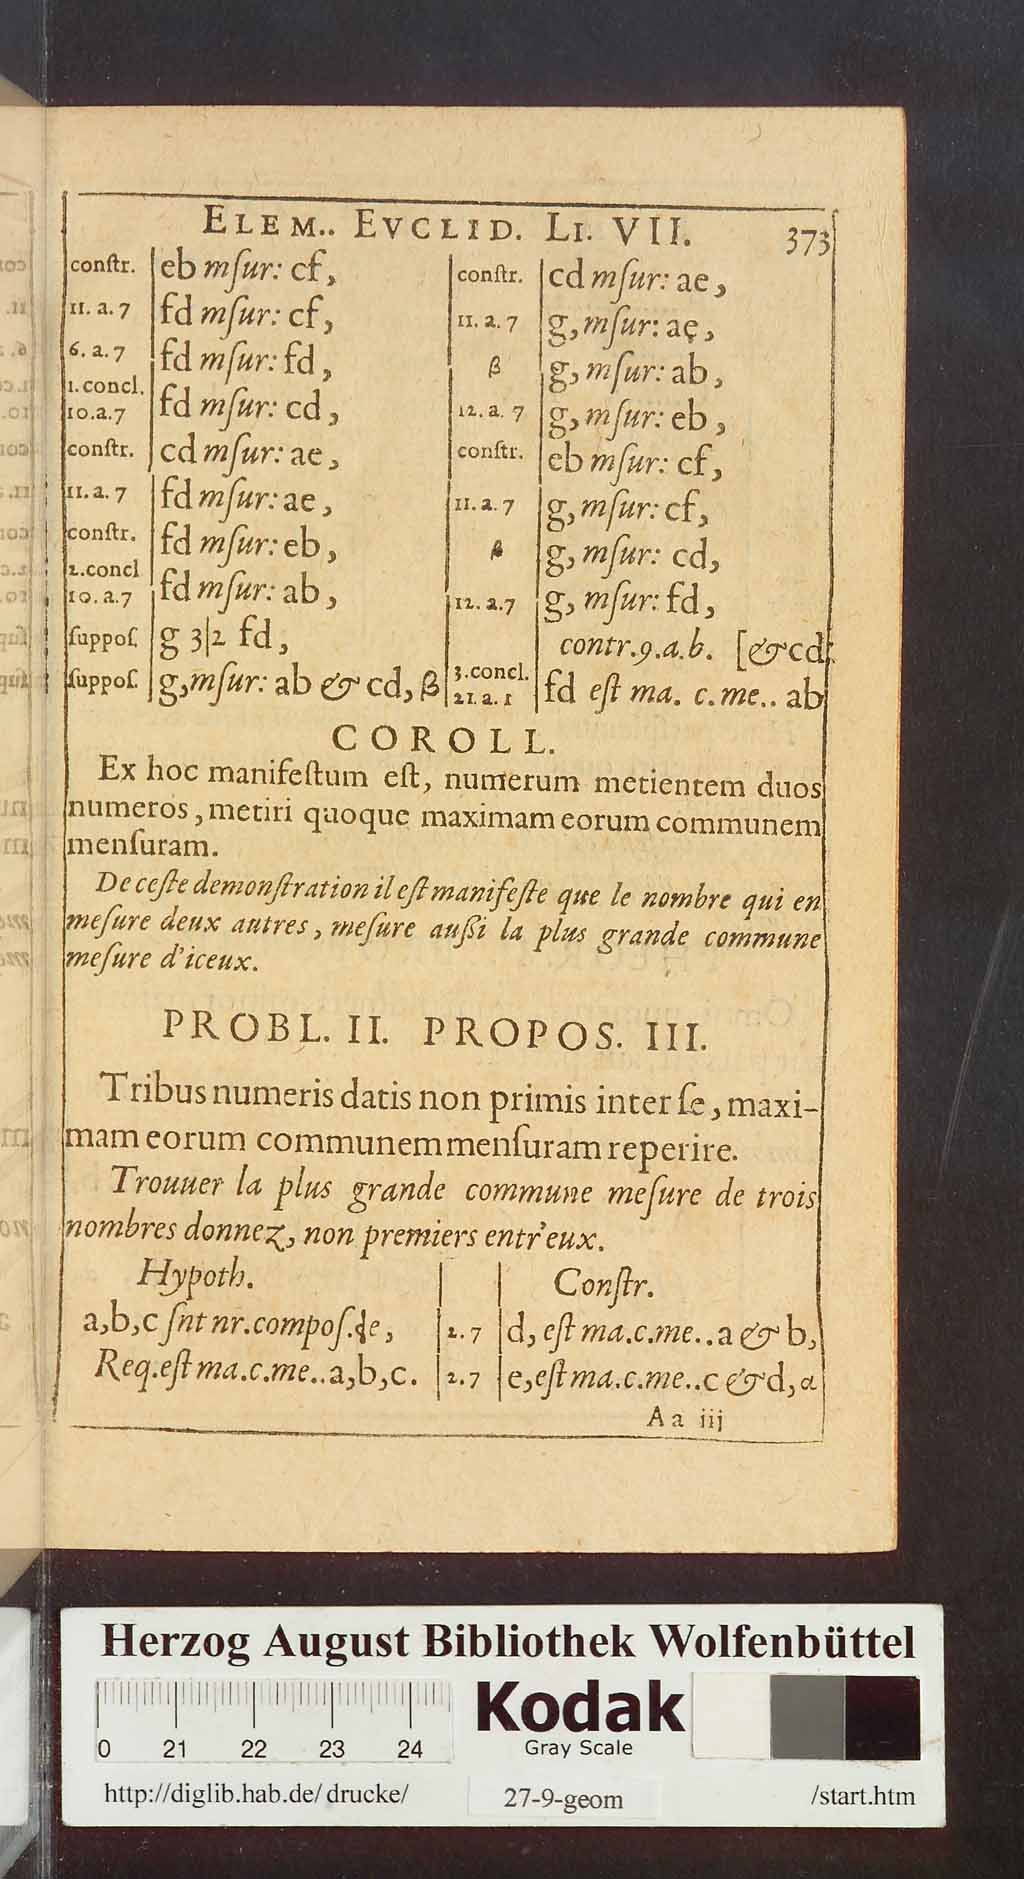 ELEM.. EVCLID. LI. VII. 373
conſtr. eb mſur: cf,
11. a. 7 fd mſur: cf,
6. a. 7 fd mſur: fd,
1.concl.
10.a.7 fd mſur: cd,
conſtr. cd mſur: ae,
11. a. 7 fd mſur: ae,
conſtr. fd mſur: eb,
2.concl
10. a.7 fd mſur: ab,
ſuppoſ. g 3|2 fd,
ſuppoſ. g, mſur: ab & cd, β
conſtr. cd mſur: ae,
11. a. 7 g, mſur: aę,
β g, mſur: ab,
12. a. 7 g, mſur: eb,
conſtr. eb mſur: cf,
11. a. 7 g, mſur: cf,
β g, mſur: cd,
12. a.7 g, mſur: fd,
contr.9.a.b. [& cd;
3.concl.
21. a. 1 fd eſt ma. c. me.. ab
COROLL.
Ex hoc manifeſtum eſt, numerum metientem duos
numeros, metiri quoque maximam eorum communem
menſuram.
De ceſte demonſtration il eſt manifeſte que le nombre qui en
meſure deux autres, meſure auſſi la plus grande commune
meſure d'iceux.
PROBL. II. PROPOS. III.
Tribus numeris datis non primis inter ſe, maxi-
mam eorum communem menſuram reperire.
Trouuer la plus grande commune meſure de trois
nombres donnez, non premiers entr'eux.
Hypoth.
a, b, c ſnt nr. compoſ.
Req. eſt ma. c. me.. a, b, c.
Conſtr.
2. 7 d, eſt ma. c. me.. a & b,
2. 7 e, eſt ma. c. me.. c & d, α
Aa iij
Herzog August Bibliothek Wolfenbüttel
0 21 22 23 24
Kodak
Gray Scale
http://diglib.hab.de/drucke/ 27-9-geom /start.htm